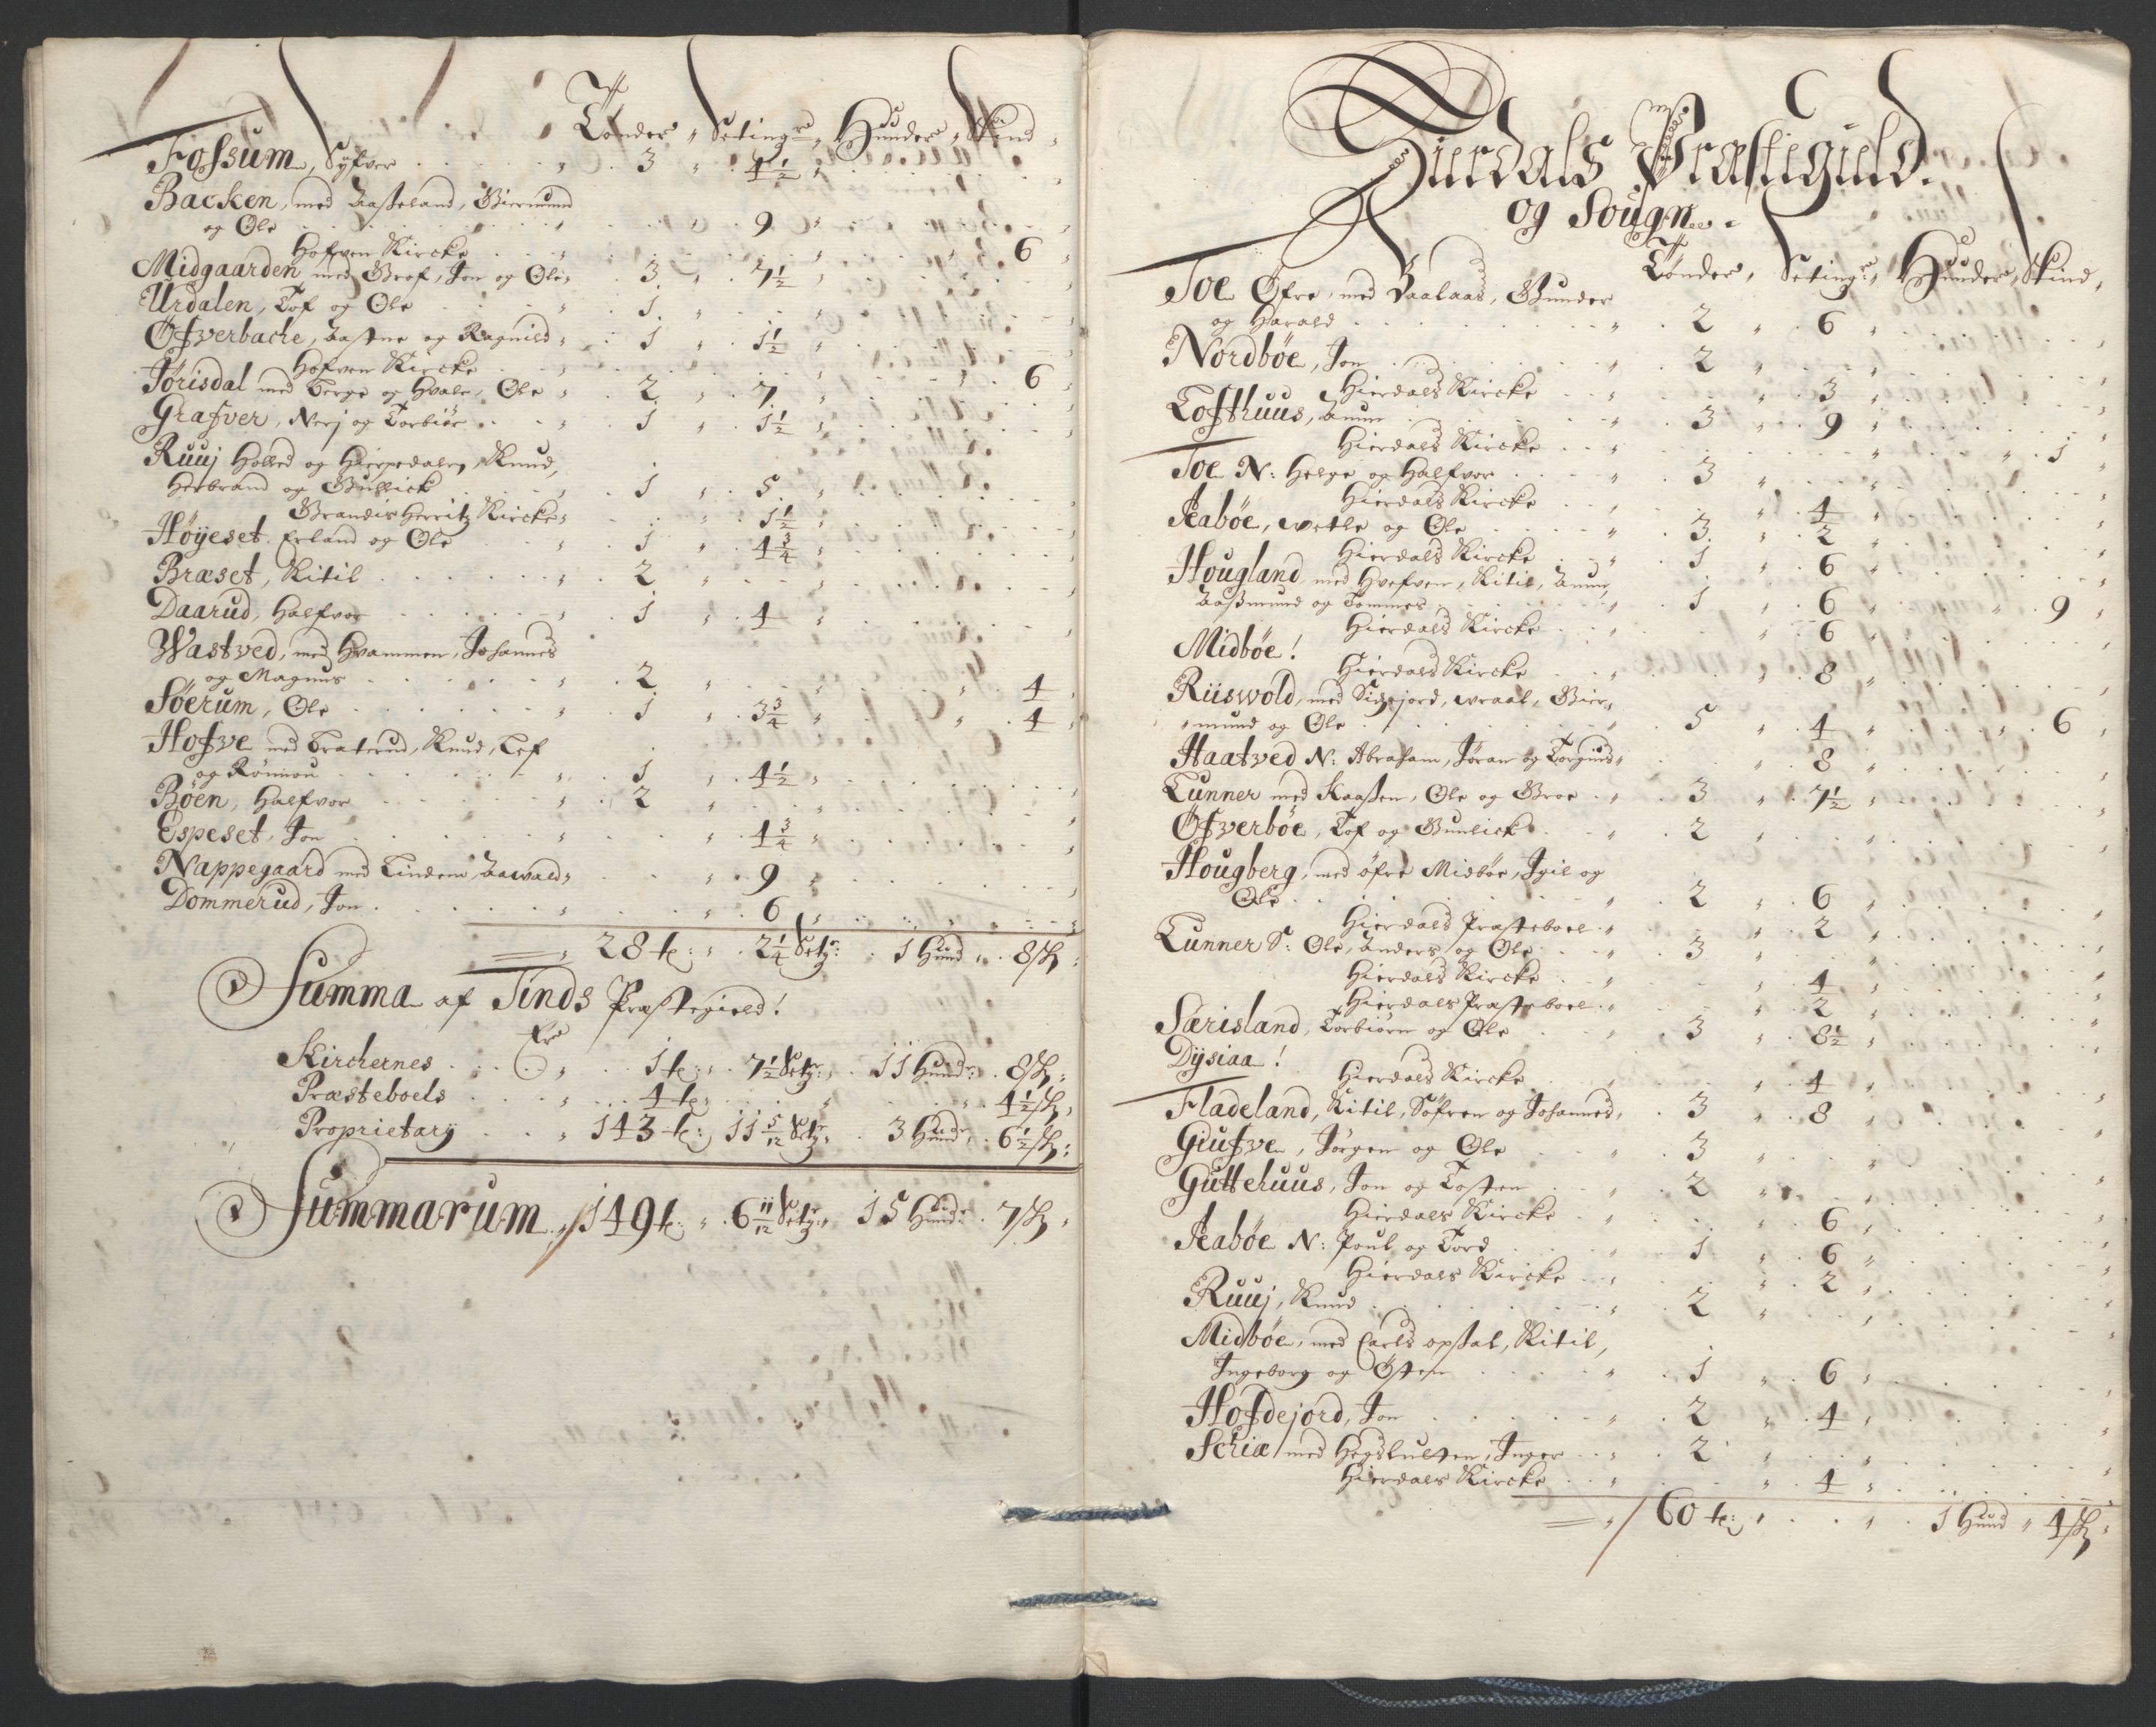 Tønder, Setingr, Hunder, Skind,
Fossum, Syfver 3 4½
Backen, med Aaseland, Giermund
og Ole 9
Hofven Kircke 6
Midgaarden med Grof, Jon og Ole 3 7½
Urdalen, Tof og Ole 1
Öfverbache, Aastne og Ragnild 1 1½
Hofven Kircke 6
Jørisdal med Berge og Hvale, Ole 2 7
Grafver, Nerj og Torbiör 1 1½
Ruuj Holled og Hierpedalen, Knud,
Herbrand og Gullick 1 5
Grandis Herritz Kircke 1½
Høyeset. Erland og Ole 1 4¾
Bræset, Kitil 2
Daarud, Halfvor 1 4
Wastved, med Hvammen, Johannes
og Magnus 2 4
Søerum, Ole 1 3¾ 4
Hofve med Braterud, Knud, Tof
og Rönnou 1 4½
Böen, Halfvor 2
Espeset, Jon 4¾
Nappegaard med Lindem, Aawald 9
Dommerud, Jon 6
28 t: 2¼ Setr: 1 Hund 8 sk:
Summa af Tinds Præstegield!
Er
Kirchernes 1 t: 7½ Setr: 11 Hundr: 8 sk:
Præsteboels 4 t: 4½ sk:
Proprietary 143 t: 11 5/12 Setr: 3 Hundr: 6½ sk:
Summarum 149 t: 6 11/12 Setr: 15 Hundr: 7 sk:
Hierdals Præstegield.
og Sougn.
Tønder, Setingr, Hunder, Skind,
Toe Øfre, med Daalaas, Gunder
og Harald 2 6
Nordböe, Jon 2
Hierdals Kircke 3
Lofthuus, Anun 3 9
Hierdals Kircke 1
Toe N: Helge og Halfvor 3
Hierdals Kircke 4
Aabøe, Wetle og Ole 3 2
Hierdals Kircke 1 6
Hougland med Hvefven, Kitil, Anun,
Aasmund og Tommes 1 6 9
Hierdals Kircke 6
Midbøe!
Hierdals Kircke 8
Riiswold, med Sidsjord, Wraal, Gier,
mund og Ole 5 4 6
Haatved N: Abraham, Jöran og Torgius 8
Lunner med Kaasen, Ole og Groe 3 7½
Öfverböe, Tof og Gunlick 2
Hougberg, med öfre Midböe, Igil og
Ole 2 6
Hierdals Præsteboel 2
Lunner S: Ole, Anders og Ole 3
Hierdals Kircke 4
Hierdals Præsteboel 2
Særisland, Torbiörn og Ole 3 8½
Dysiaa!
Hierdals Kircke 4
Fladeland, Kitil, Söfren og Johannes 3 8
Giufve, Jörgen og Ole 3
Guttehuus, Jon og Tosten 2
Hierdals Kircke 6
Aabøe N: Poul og Tord 1 6
Hierdals Kircke 2
Ruuj, Knud 2
Midböe, med Carls opsal, Kitil,
Ingeborg og Östen 1 6
Hofdejord, Jon 2 4
Schiæ med Hegskulten, Inger 2
Hierdals Kircke 4
60 t: 1 Hund 4 sk: